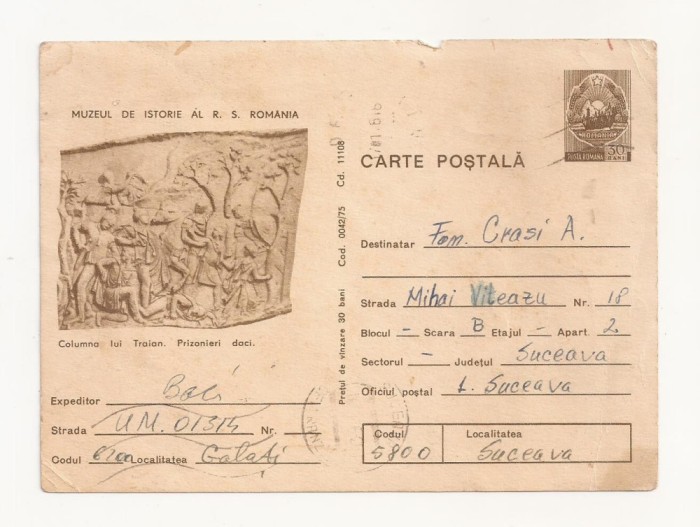 MUZEUL DE ISTORIE AL R. S. ROMÂNIA
Columna lui Traian. Prizonieri daci.
Expeditor
Strada U.M. 01315 Nr.
Codul 6200 Localitatea Galați
Prețul de vînzare 30 bani Cod. 0042/75 Cd. 11108
POSTA ROMANA 30 BANI
CARTE POȘTALĂ
Destinatar Fam. Crasi A.
Strada Mihai Viteazu Nr. 18
Blocul – Scara B Etajul – Apart. 2
Sectorul – Județul Suceava
Oficiul poștal 1. Suceava
Codul Localitatea
5800 Suceava